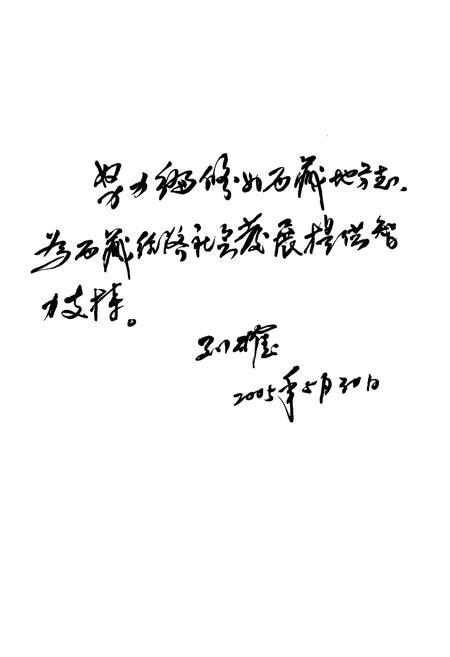 努力编修好西藏地方志，
为西藏经济社会发展提供智
力支撑。
2005年5月30日